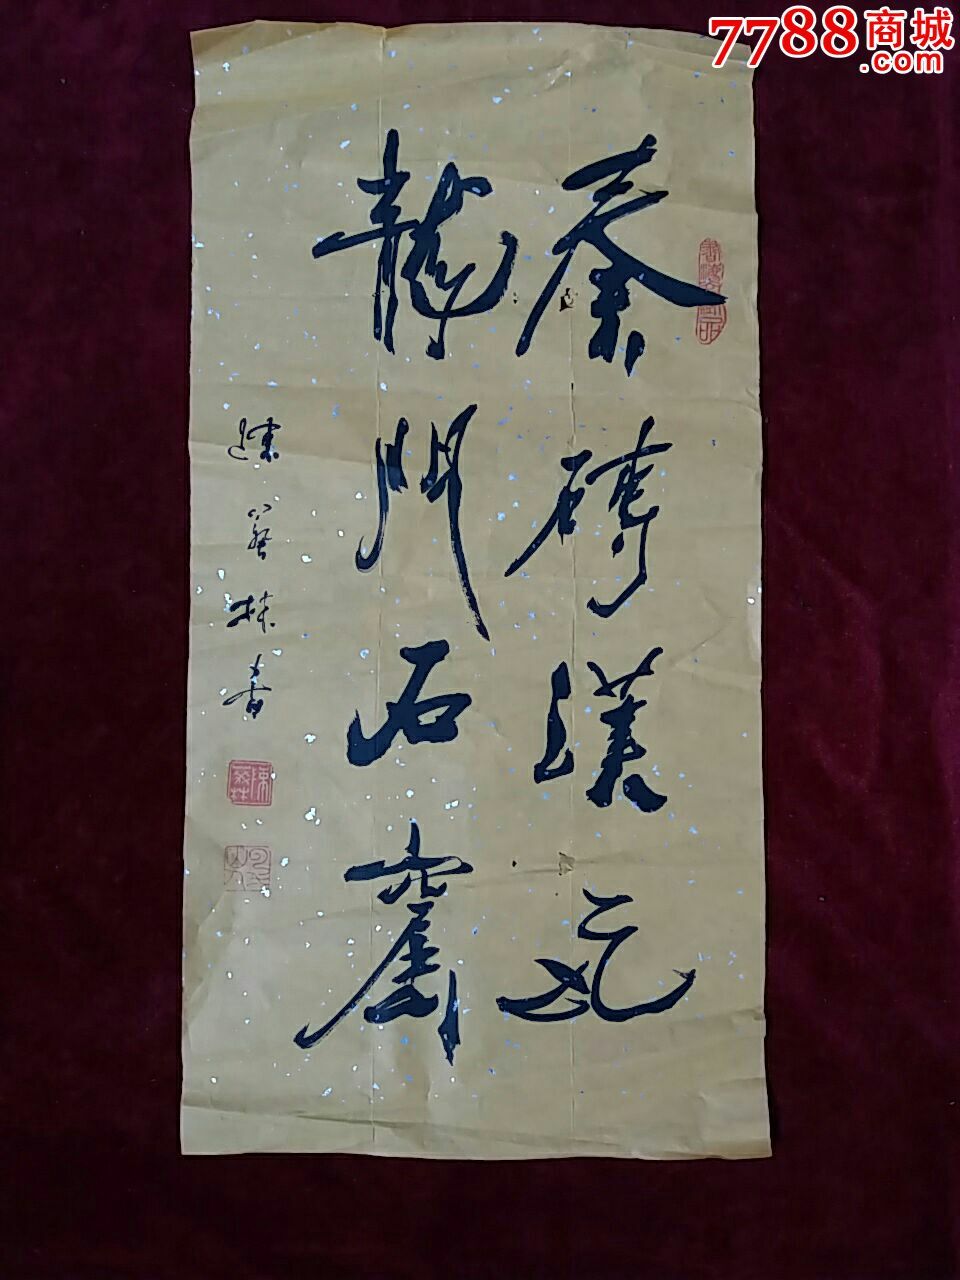 7788商城
.com
秦砖汉瓦
龍門石窟
林书